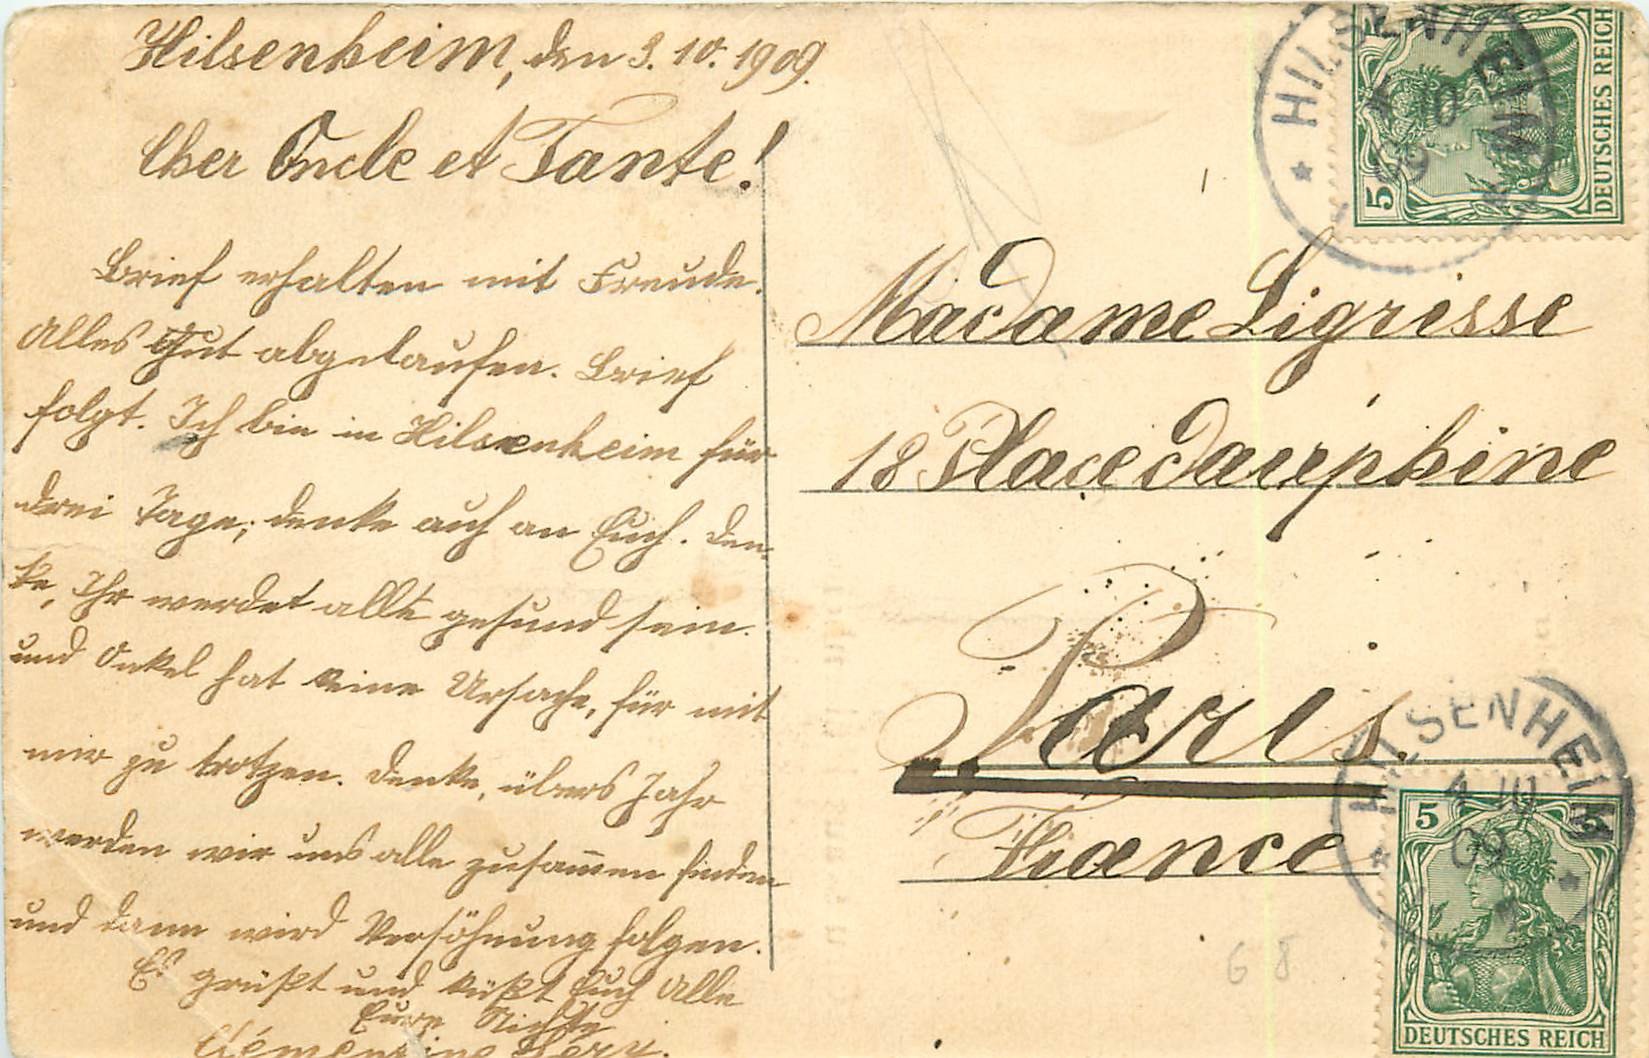 Hilsenheim, den 3. 10. 1909.
Cher Oncle et Tante!
Brief erhalten mit Freude.
Alles Gut abgelaufen. Brief
folgt. Ich bin in Hilsenheim für
drei Tage; denke auch an Euch. Den-
ke, Ihr werdet alle gesund sein.
und Onkel hat keine Ursache, für mit
mir zu trotzen. Denke, übers Jahr
werden wir uns alle zusam̅en finden
und dann wird Versöhnung folgen.
Es grüßt und küßt Euch Alle
Eure Nichte
Clémentine
Madame Ligrisse
18 Place dauphine
Paris.
France
HILSENHEIM
5
DEUTSCHES REICH
HILSENHEIM
4 10
09
5
DEUTSCHES REICH
G 8